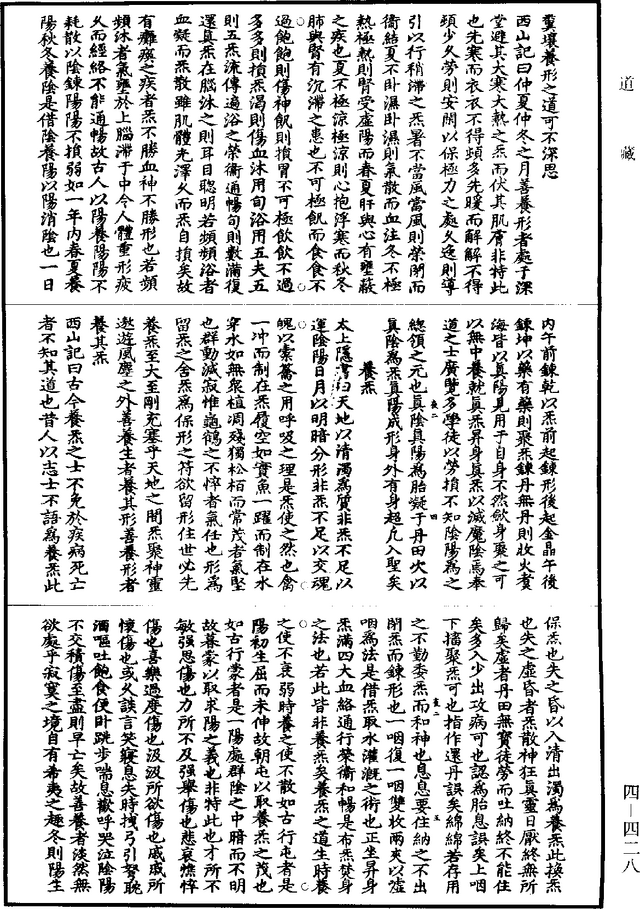 道藏
糞壤養形之道可不深思
西山記曰仲夏仲冬之月善養形者處于深
堂避其大寒大熱之炁而伏其肌膚非特此
也先寒而衣衣不得頻多先暖而解解不得
頻少久勞則安閑以保極力之處久逸則導
引以行稍滯之炁暑不當風當風則榮閉而
衛結夏不卧濕卧濕則氣散而血注冬不極
熱極熱則腎受虛陽而春夏肝與心有壅蔽
之疾也夏不極涼極涼則心抱浮寒而秋冬
肺與腎有沉滯之患也不可極飢而食食不
過飽飽則傷神飢則損胃不可極飲飲不過
多多則損炁渴則傷血沐用旬浴用五夫五
則五炁流傳遍浴之榮衛通暢旬則數滿復
還真炁在腦沐之則耳目聰明若頻頻浴者
血凝而炁散雖肌體光澤久而炁自損矣故
有癱瘓之疾者炁不勝血神不勝形也若頻
頻沐者氣壅於上腦滯于中令人體重形疲
久而經絡不能通暢故古人以陽養陽陽不
耗散以陰鍊陽陽不損弱如一年內春夏養
陽秋冬養陰是借陰養陽以陽消陰也一日
內午前鍊乾以炁前起鍊形後起金晶午後
鍊坤以藥有藥則聚炁鍊丹無丹則收火煑
海皆以真陽見用于自身不然歛身聚之可
以無中養就真炁昇身真炁以滅魔陰焉奉
道之士廣覽多學徒以勞損不知陰陽為之
總領之元也真陰真陽為胎凝于丹田次以
真陰為炁真陽成形身外有身超凡入聖矣
養炁
太上隱書曰天地以清濁為質非炁不足以
運陰陽日月以明暗分形非炁不足以交魂
魄以橐籥之用呼吸之理是炁使之然也禽
一沖而制在炁履空如實魚一躍而制在水
穿水如無衆植凋殘獨松栢而常茂者氣堅
也群動減寂惟龜鶴之不悴者氣任也形為
留炁之舍炁為保形之符欲留形住世必先
養炁至大至剛充塞乎天地之間炁聚神靈
遨遊風塵之外善養生者養其形善養形者
養其炁
西山記曰古今養炁之士不免於疾病死亡
者不知其道也昔人以志士不語為養炁此
保炁也失之昏以入清出濁為養炁此換炁
也失之虛昏者炁散神狂真靈日厭終無所
歸矣虛者丹田無寳徒勞而吐納終不能住
矣多入少出攻病可也認為胎息誤矣上咽
下搐聚炁可也指作還丹誤矣綿綿若存用
之不勤委炁而和神也息息要住納之不出
閉炁而鍊形也一咽復一咽雙收兩夾以噓
咽為法是借炁取水灌溉之術也正坐昇身
炁滿四大血絡通行榮衛和暢是布炁焚身
之法也若此皆非養炁矣養炁之道生時養
之使不衰弱時養之使不散如古行屯者是
陽初生屈而未伸故朝屯以取養炁之茂也
如古行蒙者是一陽處群陰之中暗而不明
故暮蒙以取求陽之義也非特此也才所不
敏强思傷也力所不及强舉傷也悲哀憔悴
傷也喜樂過度傷也汲汲所欲傷也戚戚所
懷傷也或久談言笑寢息失時拽弓引弩耽
酒嘔吐飽食便卧跳步喘息歡呼哭泣陰陽
不交積傷至盡則早亡矣故善養者淡然無
欲處乎寂寞之境自有希夷之趣冬則陽生
四—四二八